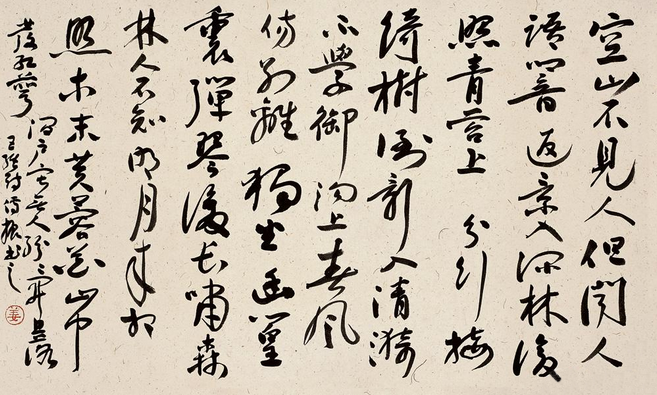 空山不見人但聞人
語響返景入深林復
照青苔上 分行接
綺樹倒影入清漪
不學御溝上春風
傷別離獨坐幽篁
裏彈琴復長嘯森
林人不知明月來相
照木末芙蓉花山中
發紅萼澗戶寂無人紛紛開且落
王維詩振書之
姜